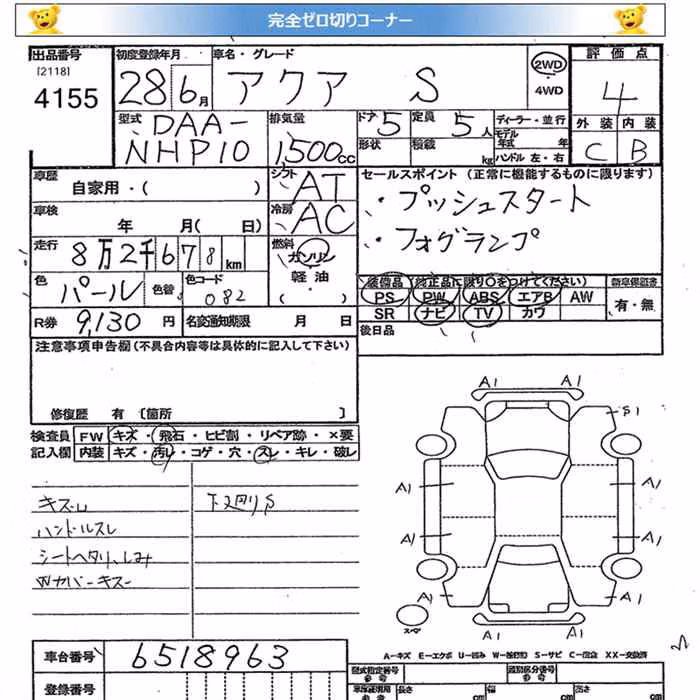 完全ゼロ切りコーナー
出品番号 初度登録年月 車名・グレード 評価点
[2118] 4155 28 6月 アクア S 2WD 4WD 4
外装 内装
C B
型式 排気量 ドア 定員 ディーラー・並行
DAA-NHP10 1,500cc 5 5人 モデル年式 年
形状 積載 kg ハンドル 左・右
車歴 シフト セールスポイント (正常に機能するものに限ります)
自家用・( ) AT ・プッシュスタート
車検 冷房 ・フォグランプ
年 月( 日) AC
走行 燃料
8万2千678km ガソリン・軽油・
色 色替 カラーコード 装備品 (純正品に限り○をつけてください) 新車保証書
パール 082 PS PW ABS エアB AW 有・無
R券 名変通知期限 SR ナビ TV カワ
9,130円 月 日 後日品
注意事項申告欄 (不具合内容等は具体的に記入して下さい)
修復歴 有 [箇所 ]
検査員 FW キズ・飛石・ヒビ割・リペア跡・×要
記入欄 内装 キズ・汚レ・コゲ・穴・スレ・キレ・破レ
キズU 下廻りS
ハンドルスレ
シートヘタリ、しみ
Wカバーキズ
A1 A1
S1
A1 A1
A1 A1
A1 A1
A1 A1
A-キズ E-エクボ U-凹み W-補修跡 S-サビ C-腐食 XX-交換済
車台番号 6518963 型式指定番号 参考 類別区分番号 参考
登録番号 長さ cm 幅 cm 高さ cm